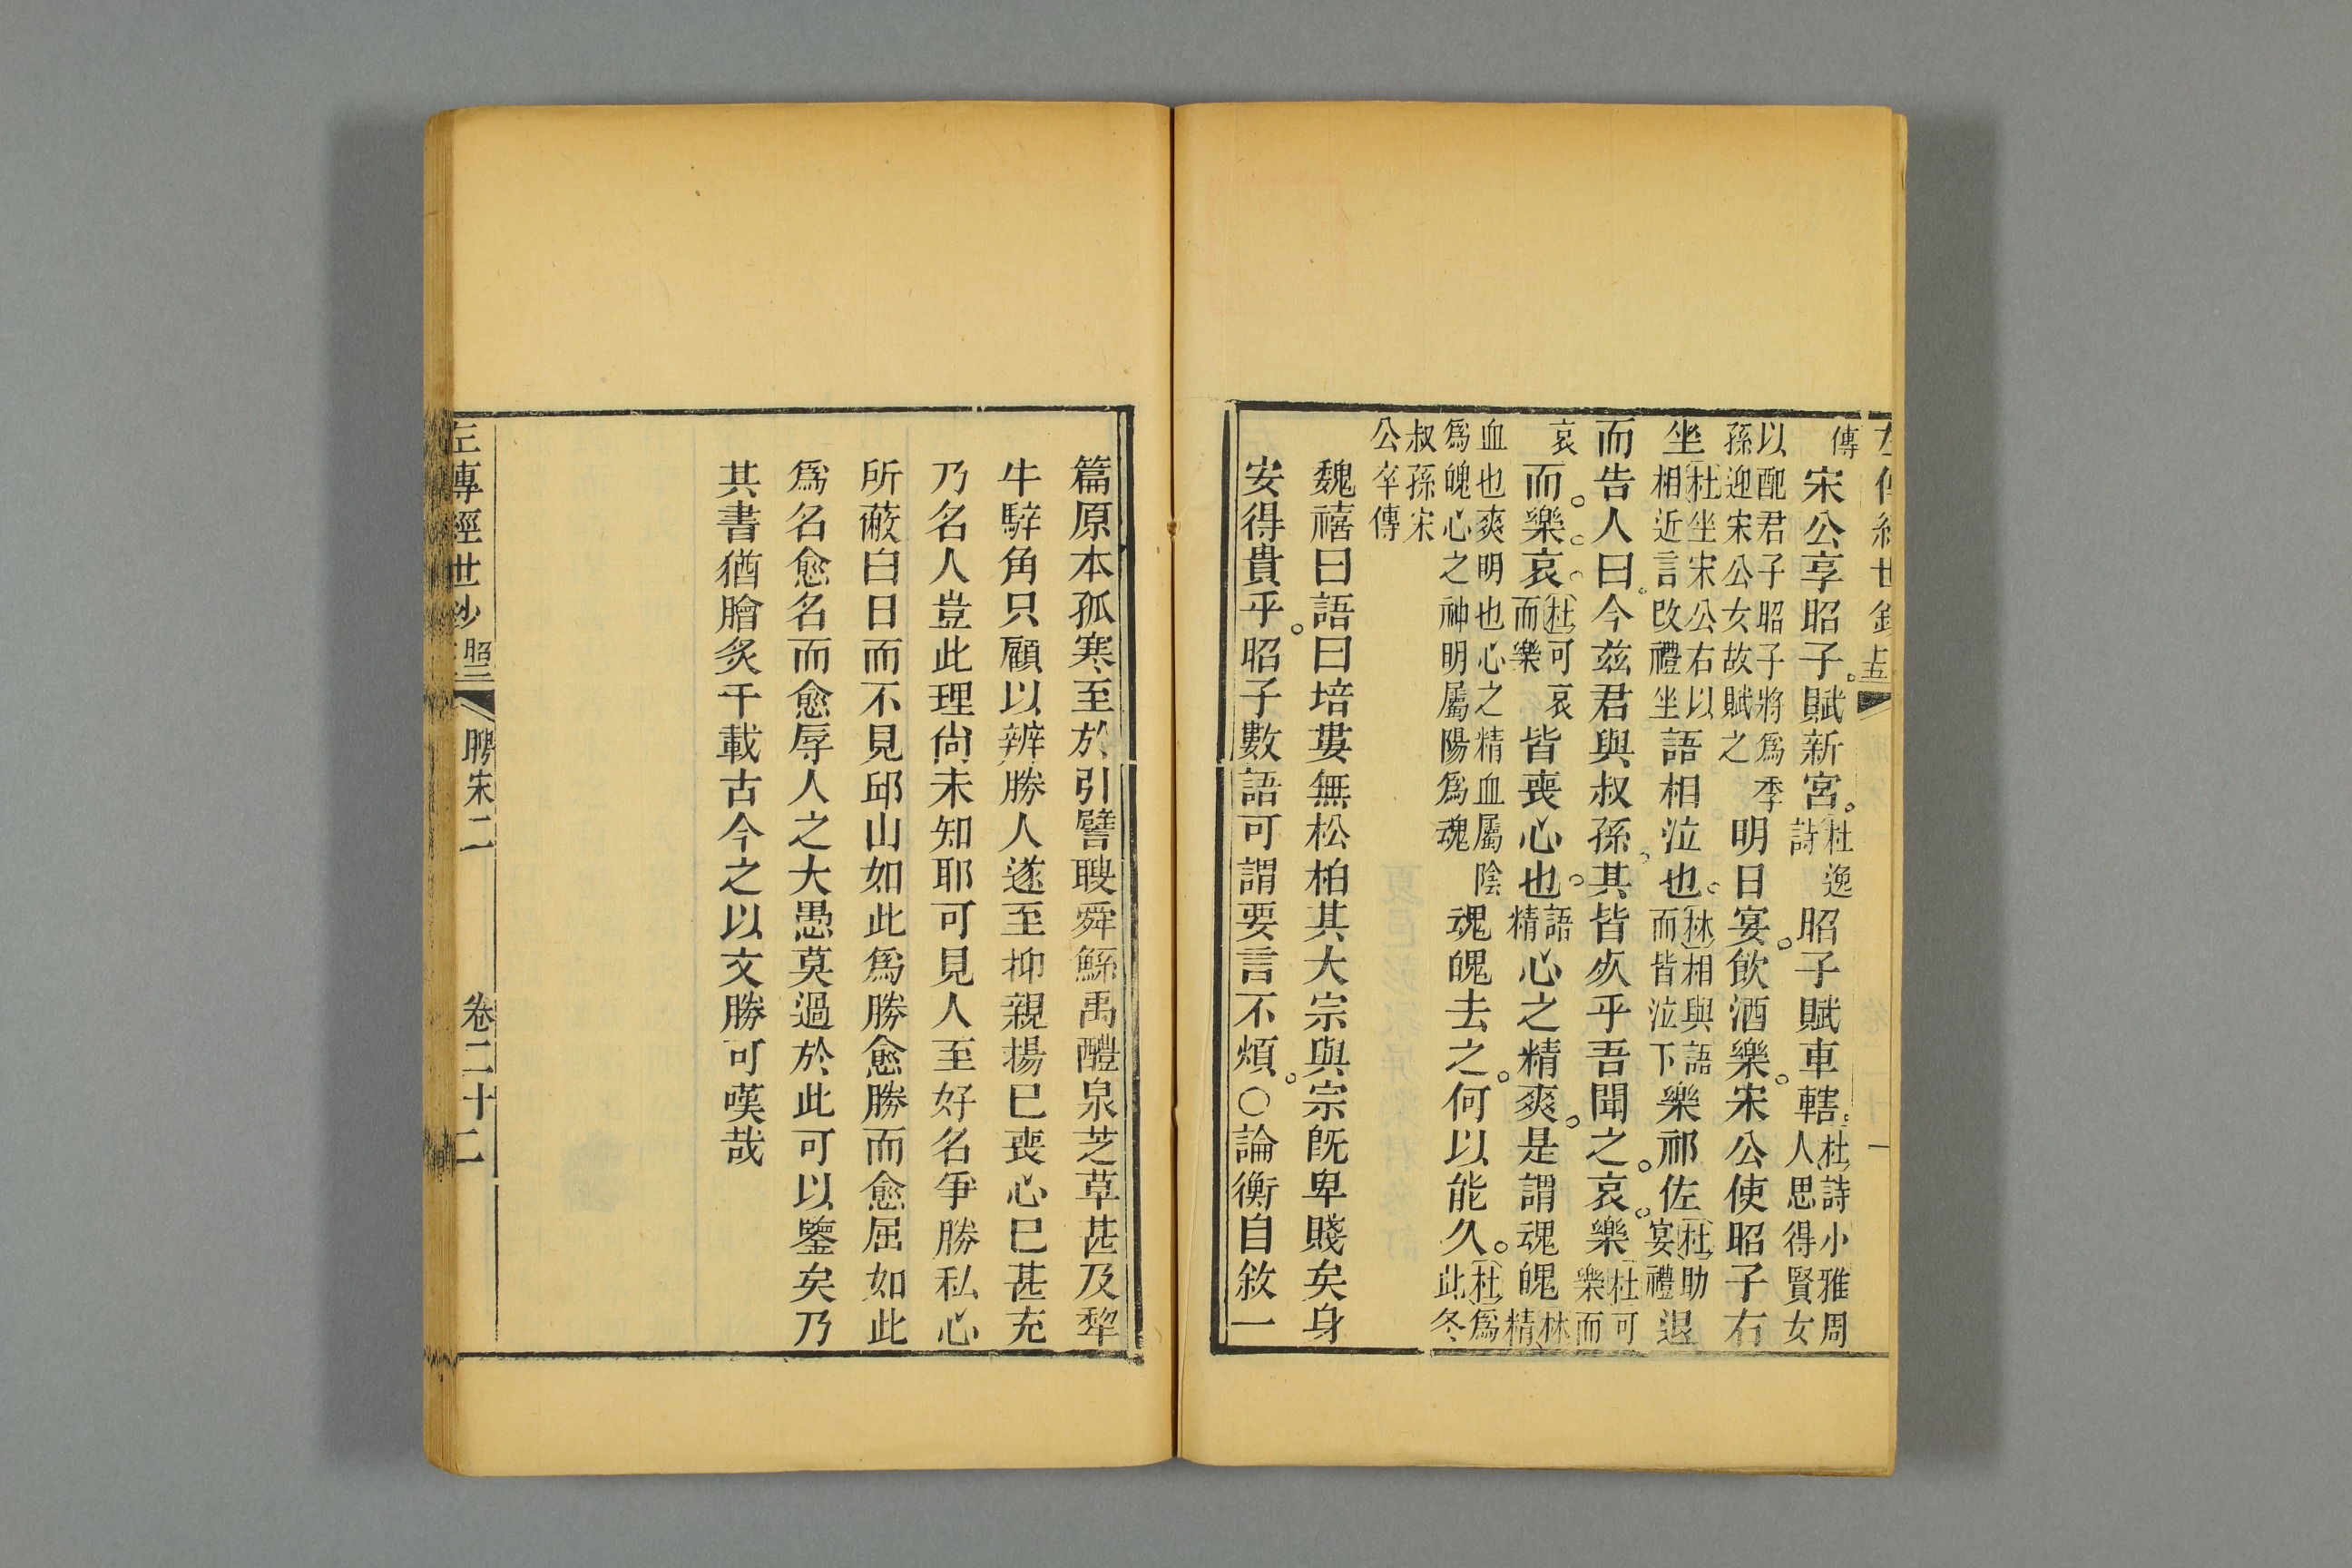 傳宋公享昭子賦新宮杜逸詩昭子賦車轄杜詩小雅周人思得賢女
以配君子昭子將爲季孫迎宋公女故賦之明日宴飮酒樂宋公使昭子右
坐杜坐宋公右以相近言改禮坐語相泣也林相與語而皆泣下樂祁佐杜助宴禮退
而告人曰今玆君與叔孫其皆𣦸乎吾聞之哀樂杜可樂而
哀而樂哀杜可哀而樂皆喪心也語精心之精爽是謂魂魄林精
血也爽明也心之精血屬陰爲魄心之神明屬陽爲魂魂魄去之何以能久杜爲此冬
叔孫宋公卒傳
魏禧曰語曰培婁無松柏其大宗與宗旣卑賤矣身
安得貴乎昭子數語可謂要言不煩○論衡自敘一
篇原本孤寒至於引譬瞍舜鯀禹醴泉芝草甚及犂
牛騂角只顧以辨勝人遂至抑親揚已喪心已甚充
乃名人豈此理尙未知耶可見人至好名爭勝私心
所蔽白日而不見邱山如此爲勝愈勝而愈屈如此
爲名愈名而愈辱人之大愚莫過於此可以鑒矣乃
其書猶膾炙千載古今之以文勝可嘆哉
左傳經世鈔 昭二 聘宋二 卷二十二